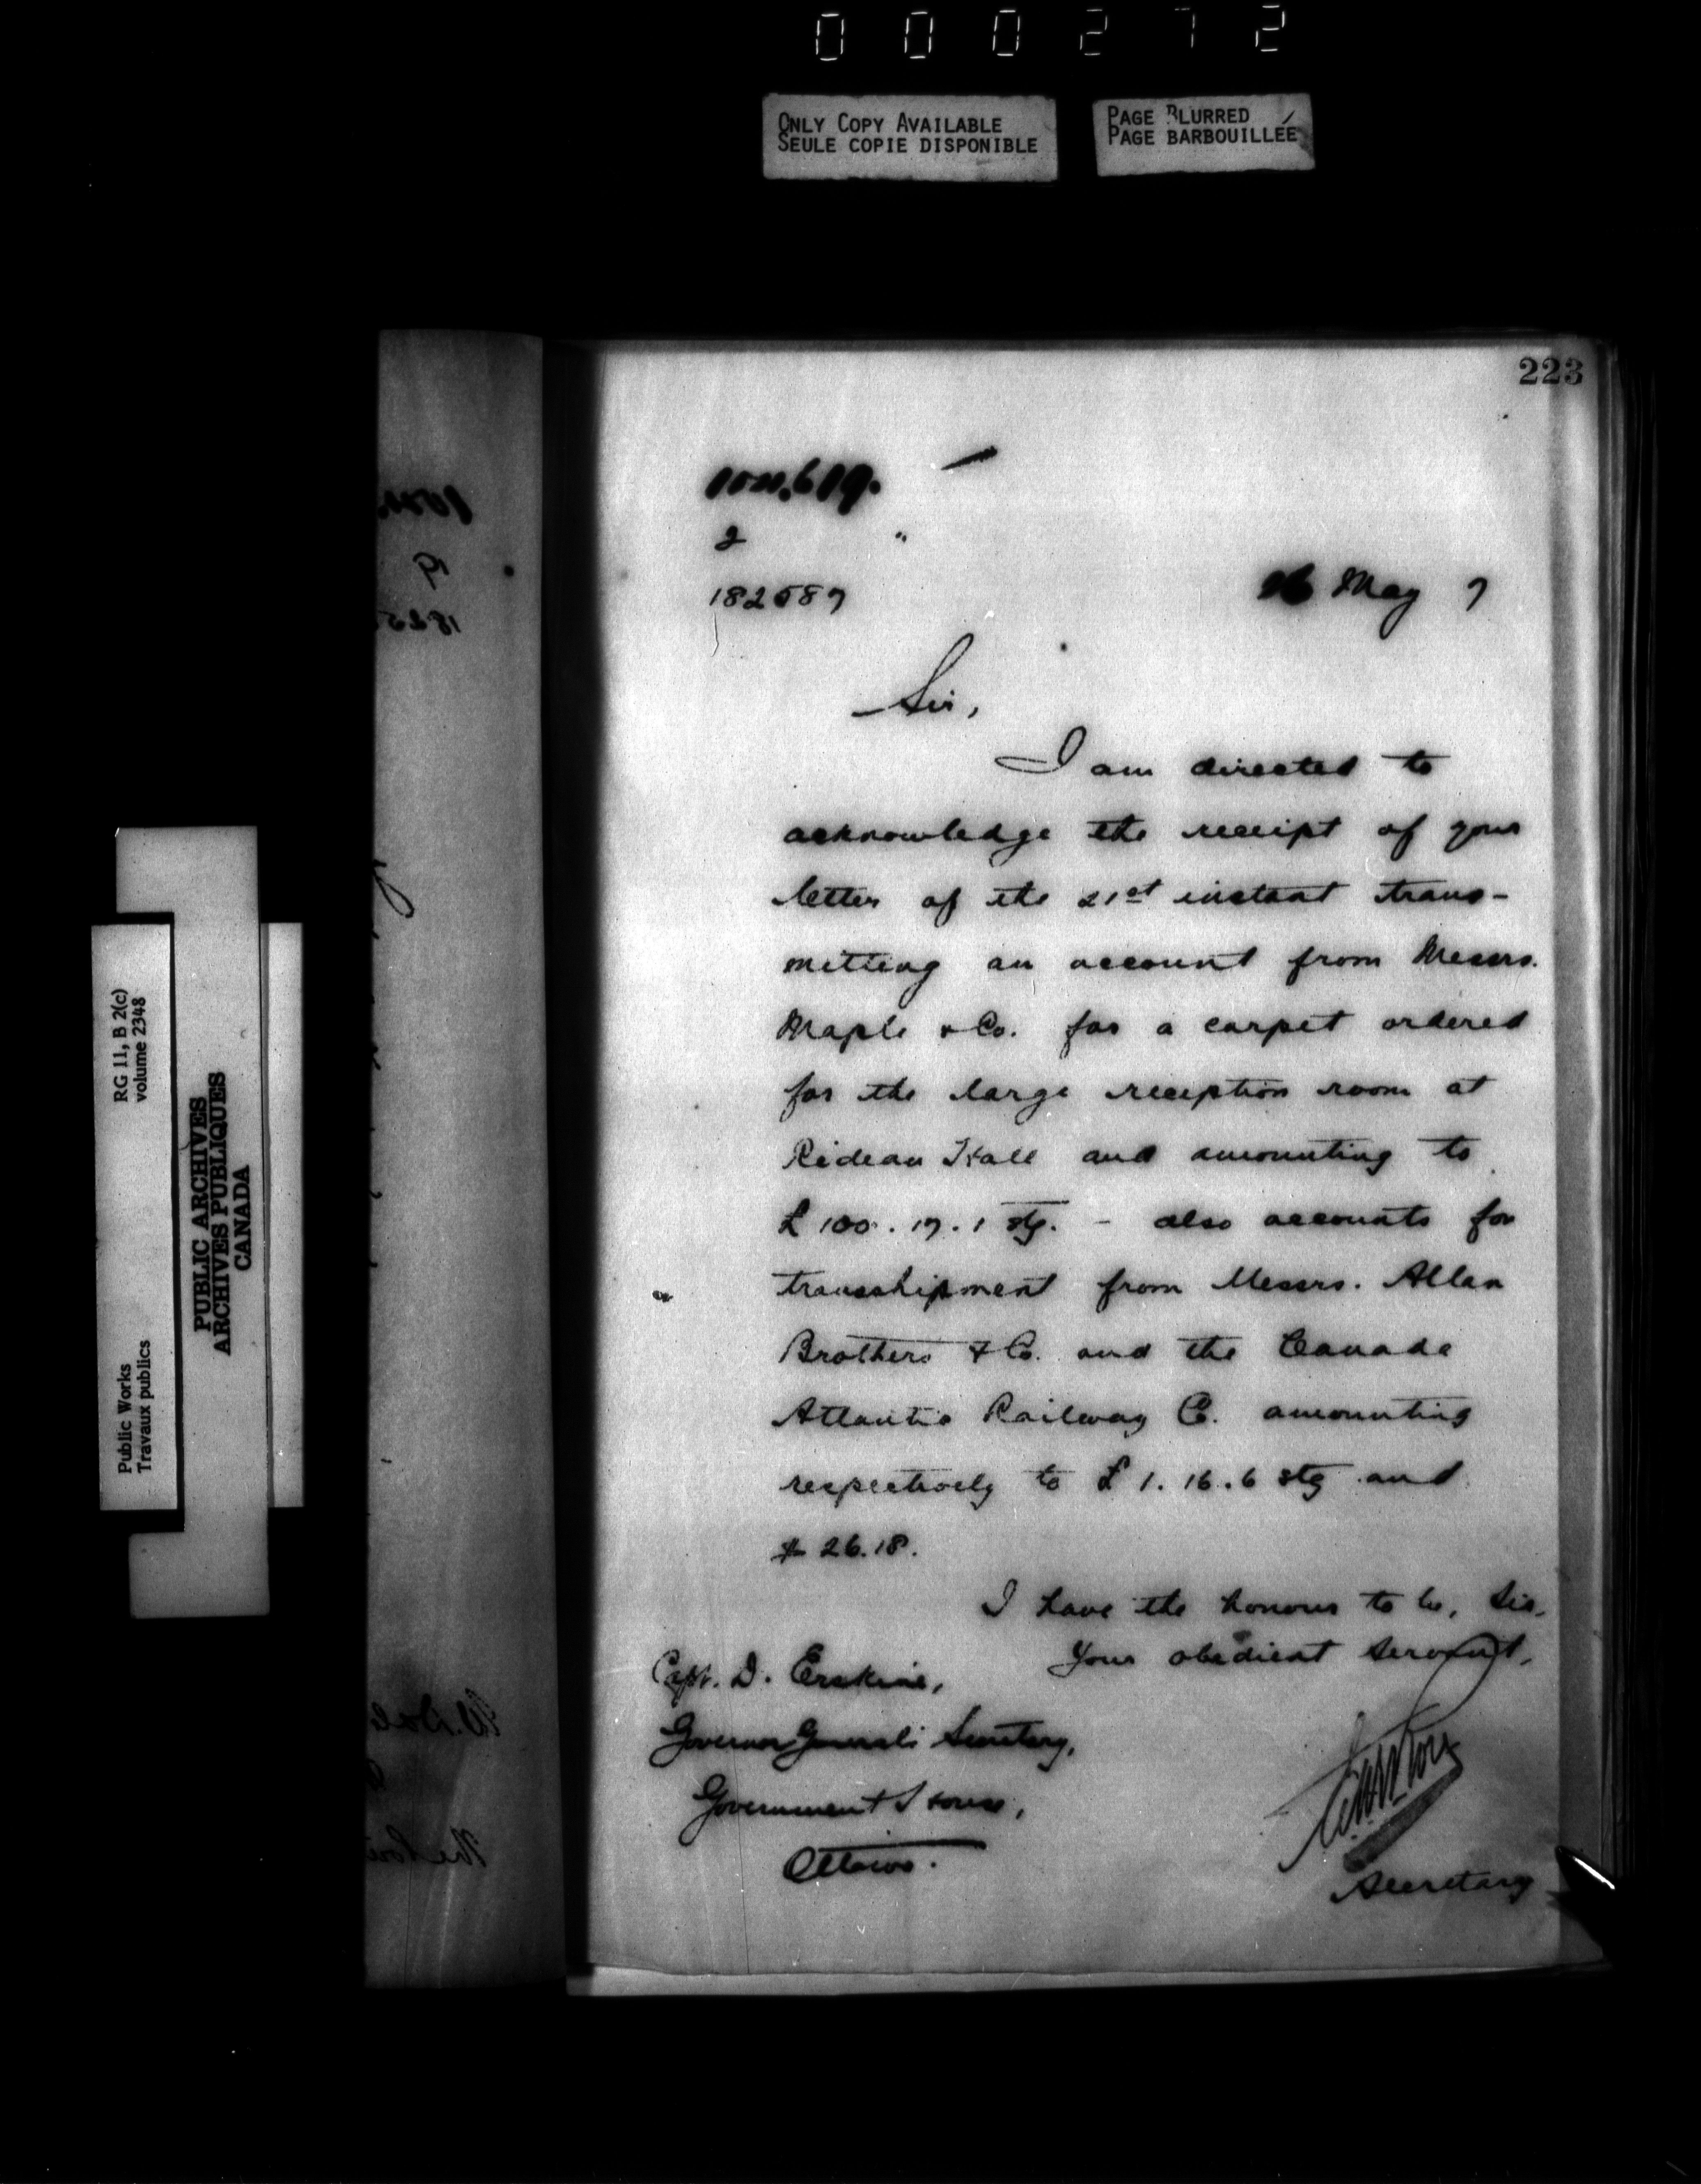 000272
ONLY COPY AVAILABLE
SEULE COPIE DISPONIBLE
PAGE BLURRED
PAGE BARBOUILLÉE
RG 11, B 2(c)
volume 2348
Public Works
Travaux publics
PUBLIC ARCHIVES
ARCHIVES PUBLIQUES
CANADA
223
2
182587
May 7
Sir,
I am directed to
acknowledge the receipt of your
letter of the 21st instant trans-
mitting an account from Messrs.
Maple & Co. for a carpet ordered
for the large reception room at
Rideau Hall and amounting to
£ 100. 17. 1 stg. - also accounts for
transshipment from Messrs. Allan
Brothers & Co. and the Canada
Atlantic Railway Co. amounting
respectively to £ 1. 16. 6 stg and
$ 26.18.
I have the honour to be, Sir,
Your obedient Servant,
Capt. D. Erskine,
Governor General's Secretary,
Government House,
Ottawa.
Secretary